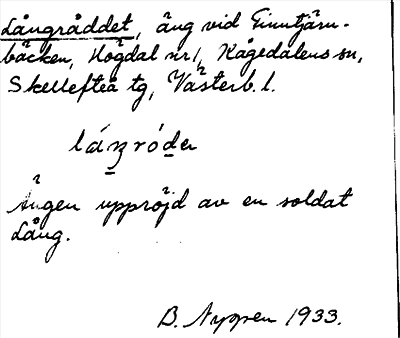 Långråddet, äng vid Finntjärn-
bäcken, Högdal nr 1, Kågedalens sn,
Skellefteå tg, Västerb. l.
Ängen uppröjd av en soldat
Lång.
B. Nyppen 1933.